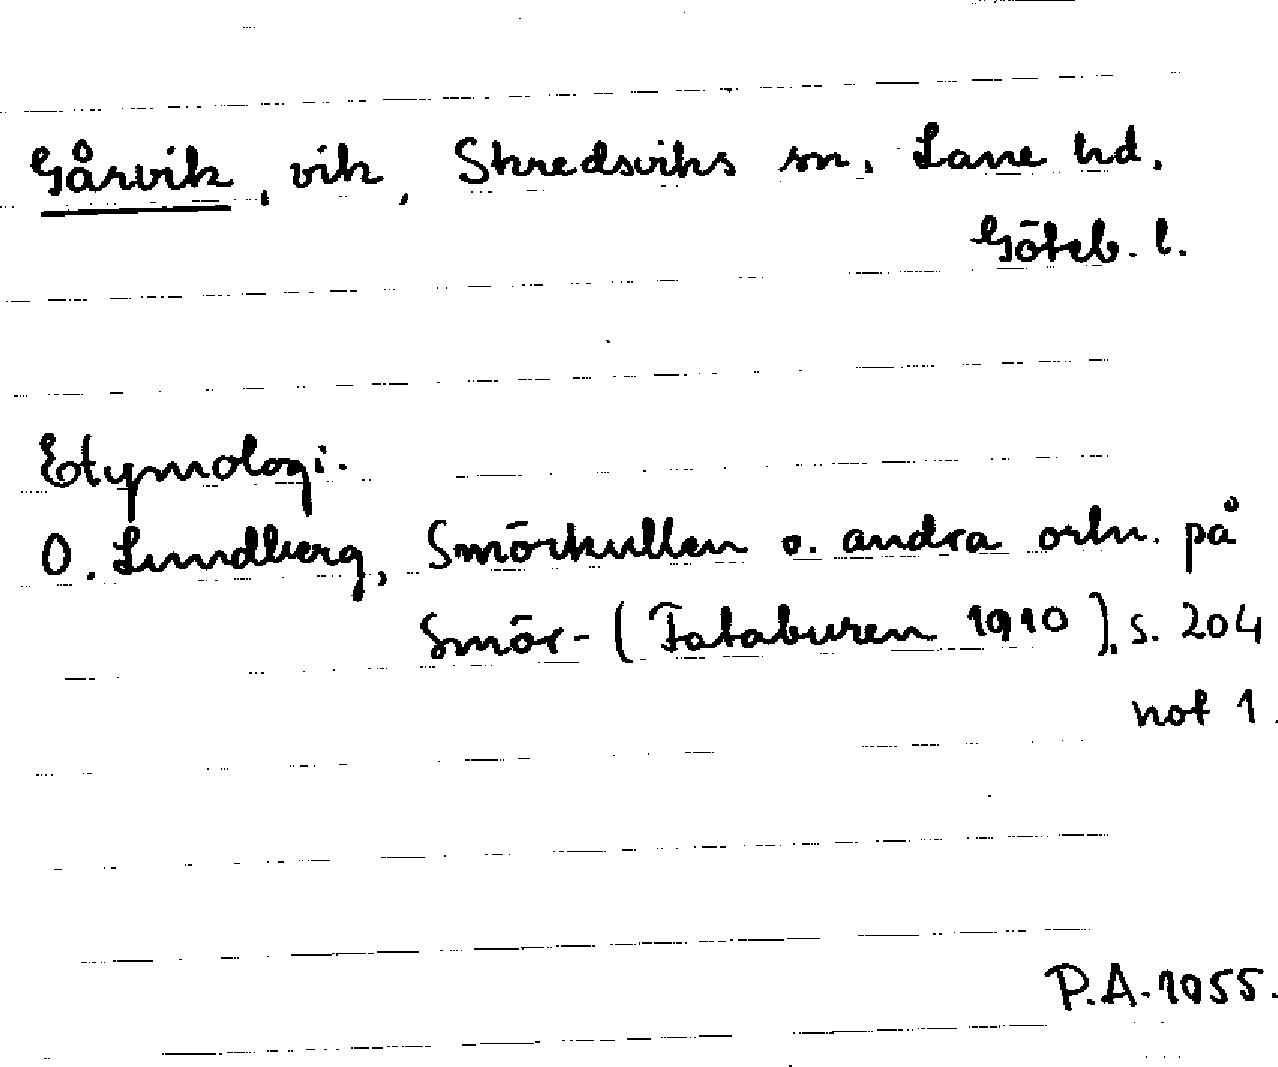 Gårvik, vik, Skredsviks sn. Lane hd.
Göteb. l.
Etymologi.
O. Lundberg, Smörkullen o. andra ortn. på
Smör- (Fataburen 1910), s. 204
not 1.
P.A. 1955.